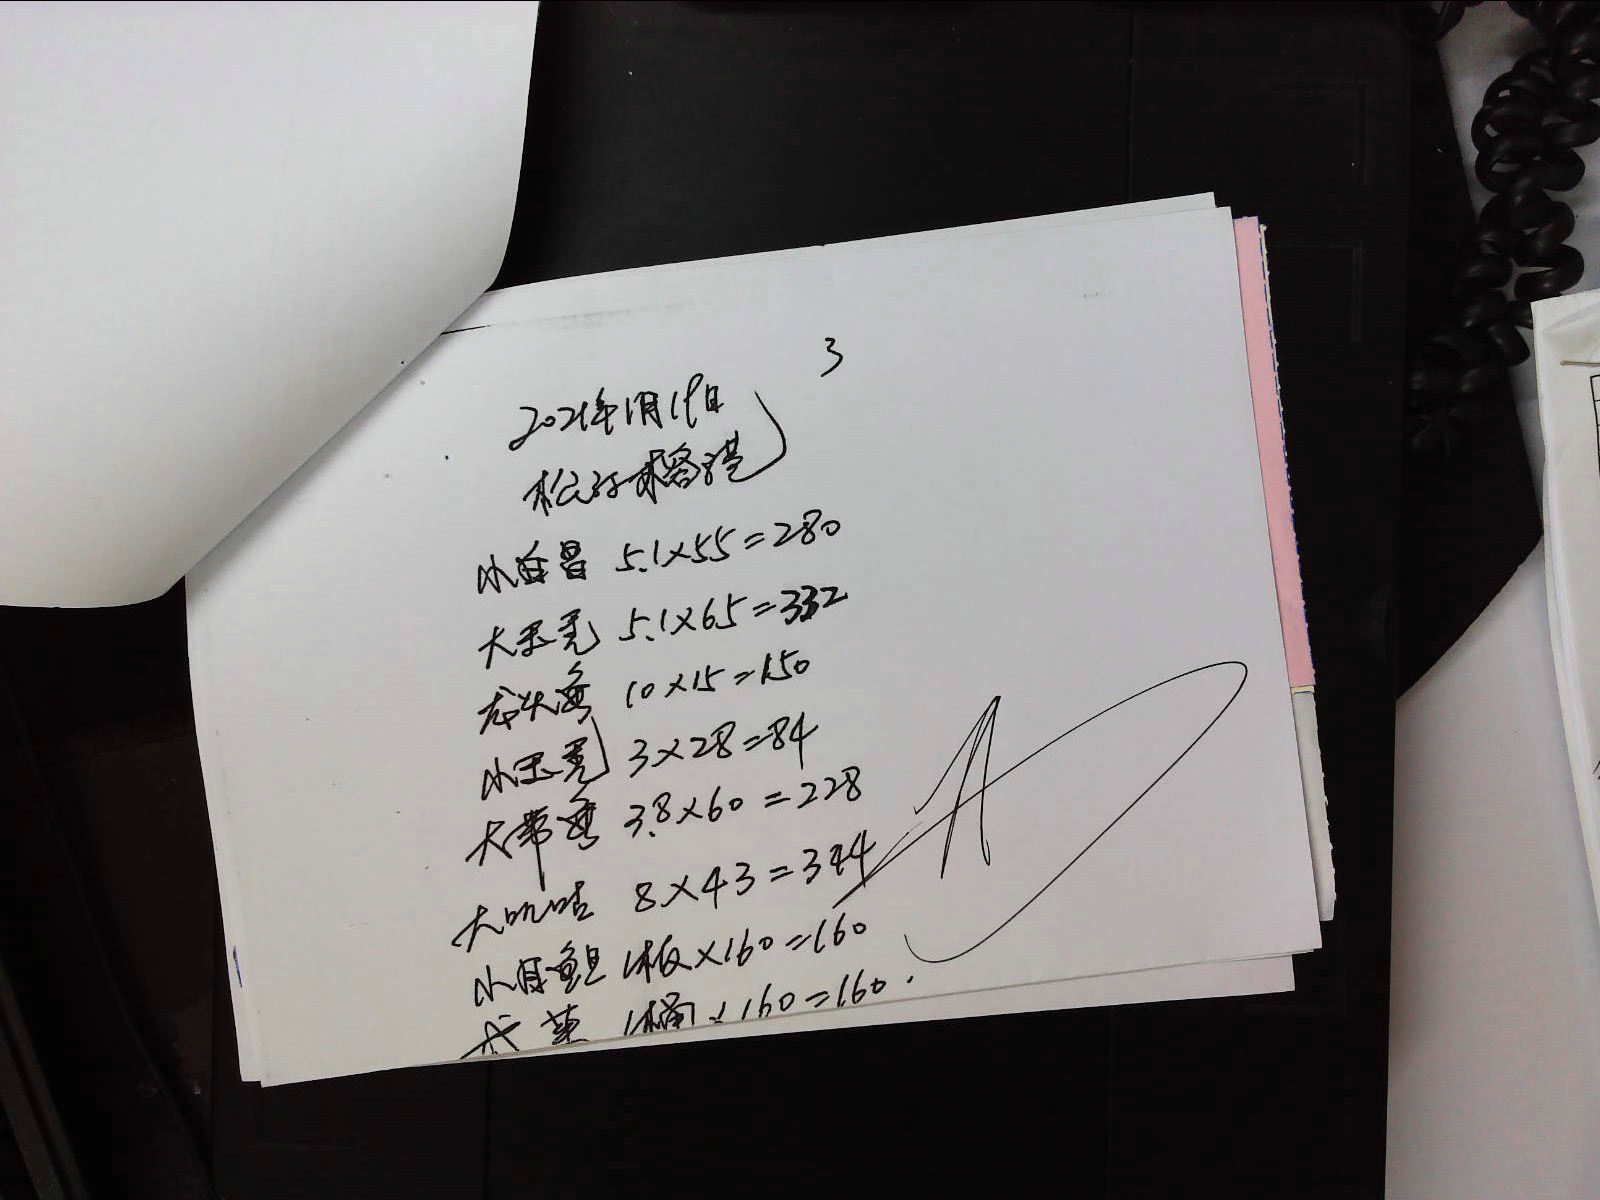 3
2021年1月19日
松江 港
小白昌 5.1×55=280
大玉秃 5.1×65=332
龙头鱼 10×15=150
小玉秃 3×28=84
大带鱼 3.8×60=228
大叽咕 8×43=344
小目鱼旦 1板×160=160
1桶×160=160